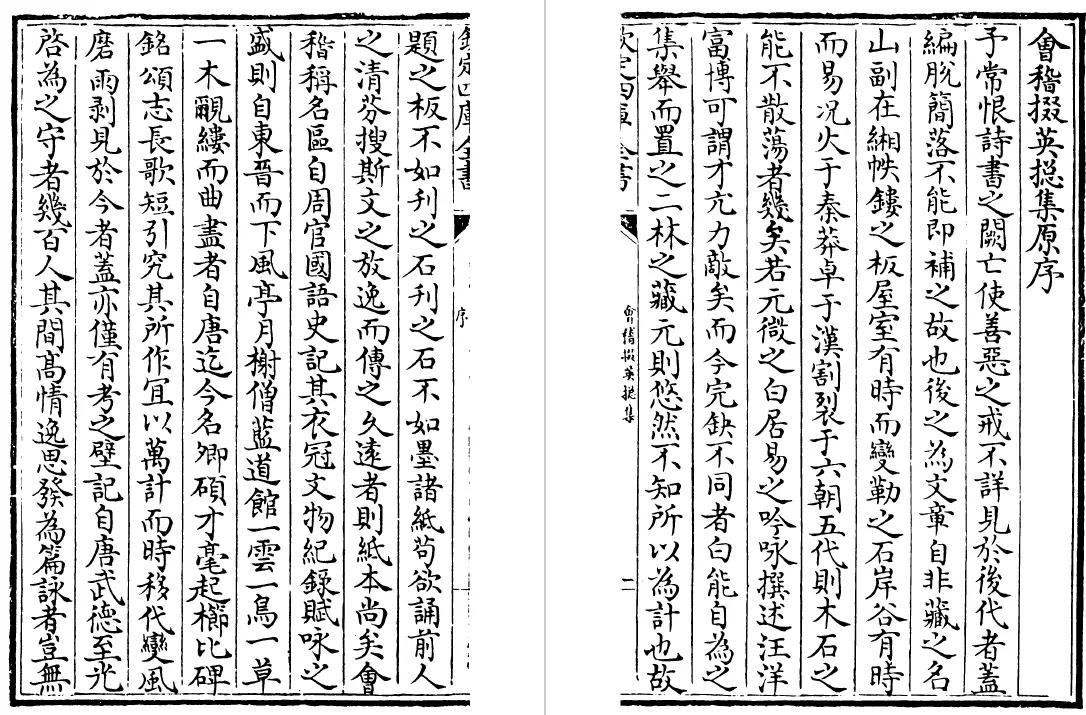 會稽掇英捴集原序
予常恨詩書之闕亡使善惡之戒不詳見於後代者蓋
編脫簡落不能即補之故也後之為文章自非藏之名
山副在緗帙鏤之板屋室有時而變勒之石岸谷有時
而易况火于秦莽卓于漢割裂于六朝五代則木石之
能不散蕩者幾矣若元微之白居易之吟咏撰述汪洋
富博可謂才亢力敵矣而今完缺不同者白能自為之
集舉而置之二林之藏元則悠然不知所以為計也故
欽定四庫全書
會稽掇英捴集
二
欽定四庫全書
序
題之板不如刋之石刋之石不如墨諸紙苟欲誦前人
之清芬搜斯文之放逸而傳之久遠者則紙本尚矣會
稽稱名區自周官國語史記其衣冠文物紀録賦咏之
盛則自東晉而下風亭月榭僧藍道館一雲一鳥一草
一木覼縷而曲盡者自唐迄今名卿碩才毫起櫛比碑
銘頌志長歌短引究其所作冝以萬計而時移代變風
磨雨剥見於今者蓋亦僅有考之壁記自唐武德至光
啓為之守者幾百人其間髙情逸思發為篇詠者豈無